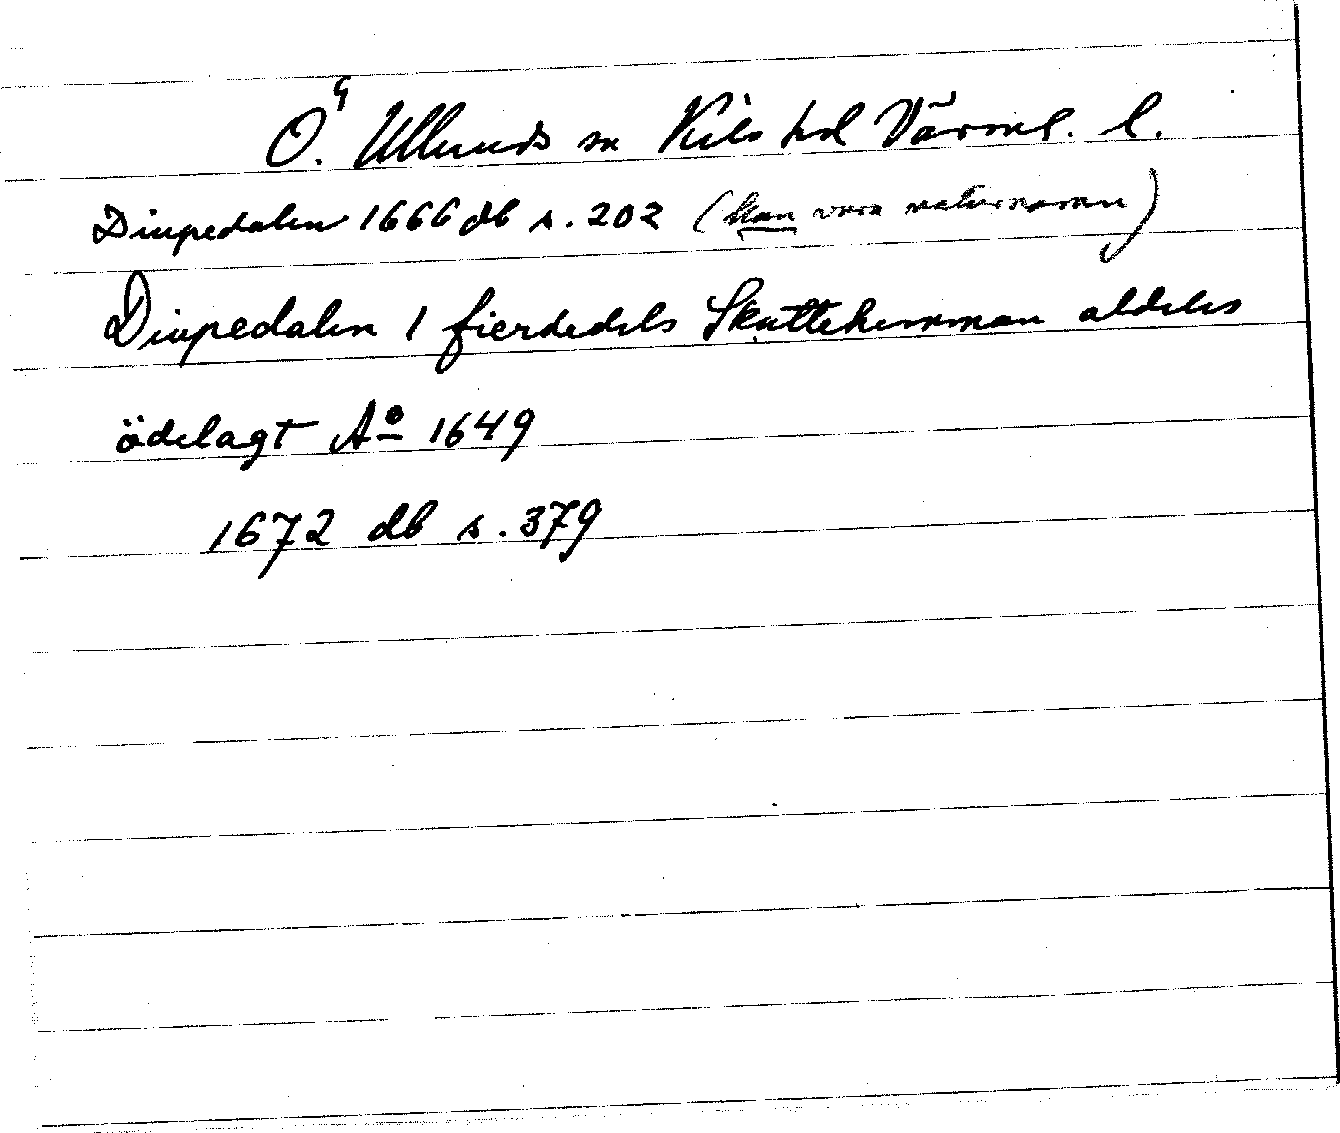 Ö. Ulleruds sn Kils hd Värml. l.
Diupedalen 1666 db s. 202 (kan vara naturnamn)
Diupedalen 1 fierdedels Skattehemman aldeles
ödelagt Aº 1649
1672 db s. 379